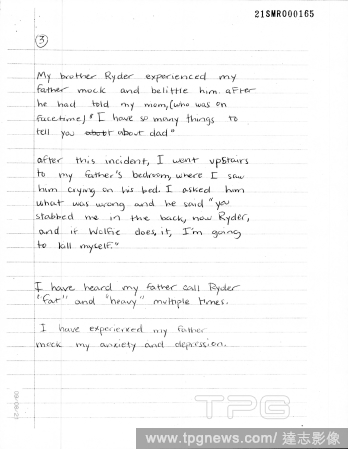 21SMR000165
3
My brother Ryder experienced my
father mock and belittle him after
he had told my mom, (who was on
facetime) "I have so many things to
tell you about about dad"
after this incident, I went upstairs
to my father's bedroom, where I saw
him crying on his bed. I asked him
what was wrong and he said "you
stabbed me in the back, now Ryder,
and if Wolfie does, it, I'm going
to kill myself."
I have heard my father call Ryder
"fat" and "heavy" multiple times.
I have experienced my father
mock my anxiety and depression.
TPG
www.tpgnews.com/ 達志影像